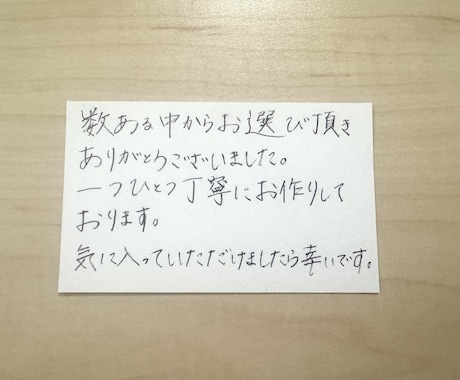 数ある中からお選び頂き
ありがとうございました。
一つひとつ丁寧にお作りして
おります。
気に入っていただけましたら幸いです。